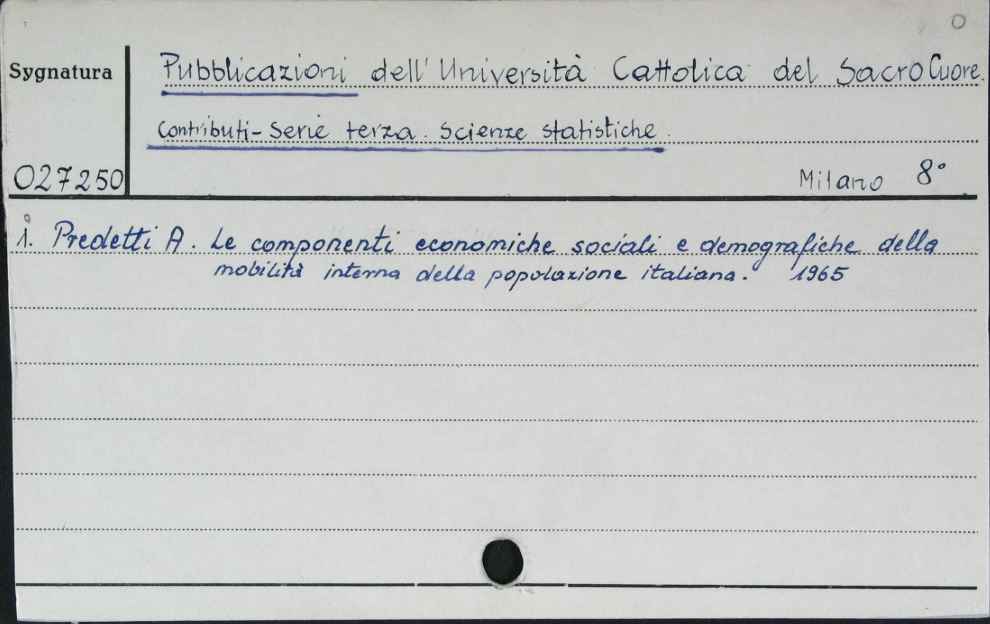 O
Sygnatura
Pubblicazioni dell' Università Cattolica del Sacro Cuore.
Contributi - Serie terza. Scienze statistiche.
027250
Milano 8°
1. Predetti A. Le componenti economiche sociali e demografiche della
mobilità interna della popolazione italiana. 1965